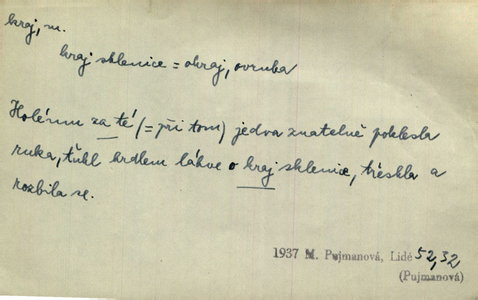 kraj, m.
kraj sklenice = okraj, ovruba
Holému za té (= při tom) jedva znatelně poklesla
ruka, ťuhl hrdlem láhve o kraj sklenice, třeskla a
rozbila se.
1937 M. Pujmanová, Lidé 52,32
(Pujmanová)